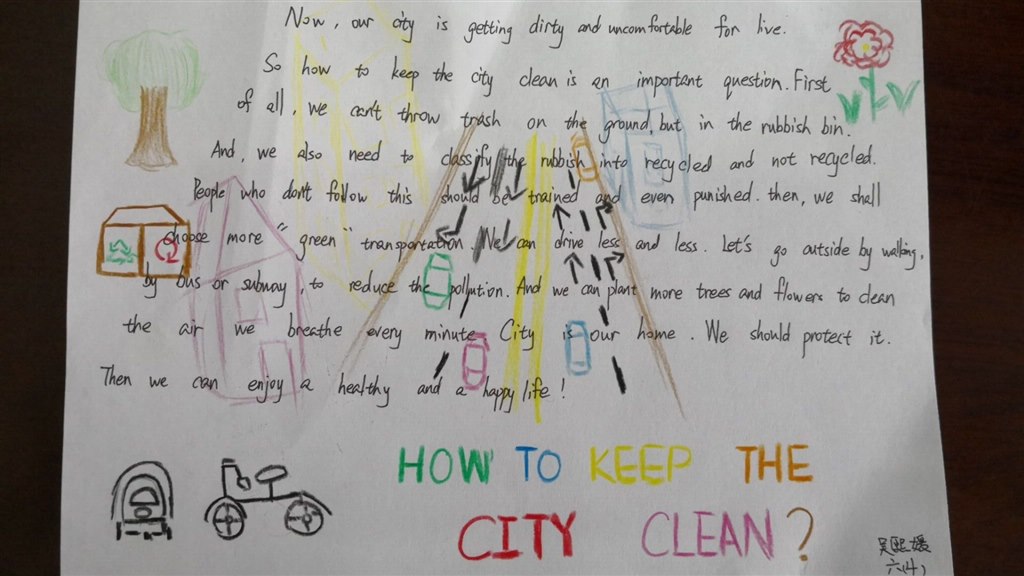 Now, our city is getting dirty and uncomfortable for live.
So how to keep the city clean is an important question. First
of all, we can't throw trash on the ground, but in the rubbish bin.
And, we also need to classify the rubbish into recycled and not recycled.
People who don't follow this should be trained and even punished. then, we shall
choose more "green" transportation. We can drive less and less. Let's go outside by walking,
by bus or subway, to reduce the pollution. And we can plant more trees and flowers to clean
the air we breathe every minute. City is our home. We should protect it.
Then we can enjoy a healthy and a happy life!
HOW TO KEEP THE
CITY CLEAN?
吴熙媛
六(4)